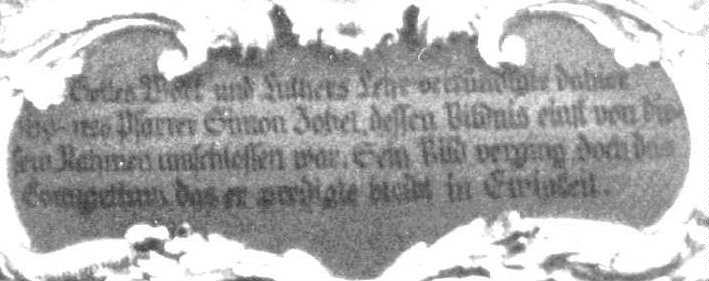 Gottes Wort und Luthers Lehr verkündigte dahier
Pfarrer Simon Zobel, dessen Bildnis einst von die-
sem Rahmen umschlossen war. Sein Bild vergang doch das
Evangelium, das er predigte bleibt in Ewigkeit.